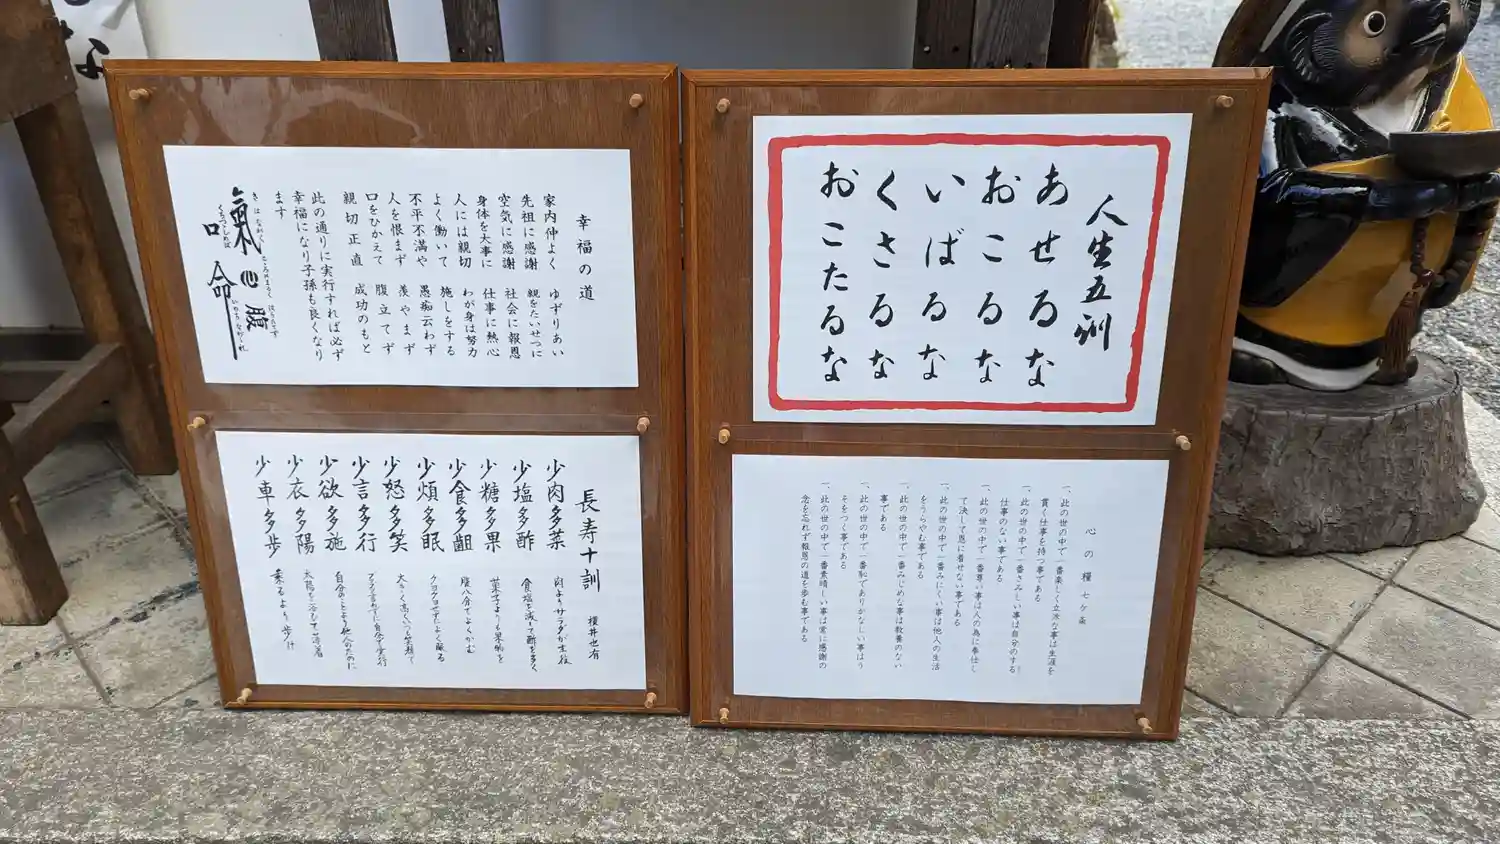 な
幸福の道
家内仲よく ゆずりあい
先祖に感謝 親をたいせつに
空気に感謝 社会に報恩
身体を大事に 仕事に熱心
人には親切 わが身は努力
よく働いて 施しをする
不平不満や 愚痴云わず
人を恨まず 羨やまず
口をひかえて 腹立てず
親切正直 成功のもと
此の通りに実行すれば必ず
幸福になり子孫も良くなり
ます
氣心腹
口命
長寿十訓 横井也有
少肉多菜 肉よりサラダが主役
少塩多酢 食塩を減して酢を多く
少糖多果 菓子よりも果物を
少食多齟 腹八分でよくかむ
少煩多眠 クヨクヨせずによく眠る
少怒多笑 大きく高くいつも笑顔で
少言多行
少欲多施 自分のことより他人のために
少衣多陽 太陽を浴びて薄着
少車多歩 乗るより歩け
人生五訓
あせるな
おこるな
いばるな
くさるな
おこたるな
心の糧七ケ条
一、此の世の中で一番楽しく立派な事は生涯を
貫く仕事を持つ事である
一、此の世の中で一番さみしい事は自分のする
仕事のない事である
一、此の世の中で一番尊い事は人の為に奉仕し
て決して恩に着せない事である
一、此の世の中で一番みにくい事は他人の生活
をうらやむ事である
一、此の世の中で一番みじめな事は教養のない
事である
一、此の世の中で一番恥でありかなしい事はう
そをつく事である
一、此の世の中で一番素晴しい事は常に感謝の
念を忘れず報恩の道を歩む事である